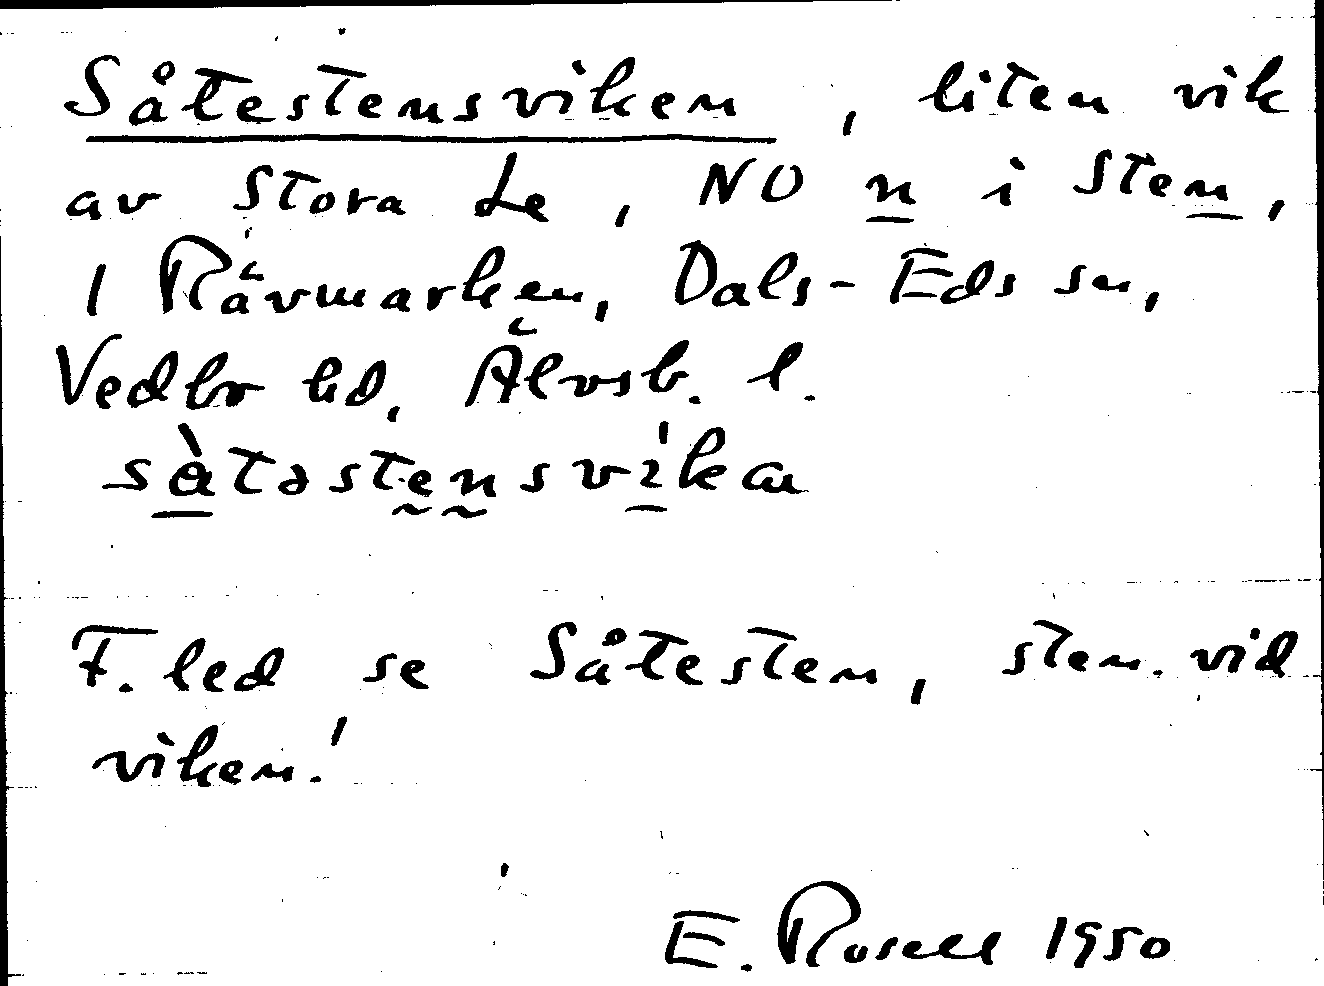 Såtestensviken, liten vik
av Stora Le, NO n i Sten,
1 Rävmarken, Dals-Eds sn,
Vedbo hd, Älvsb. l.
sàtəstensvíkan
F. led se Såtesten, sten. vid
viken!
E. Rosell 1950